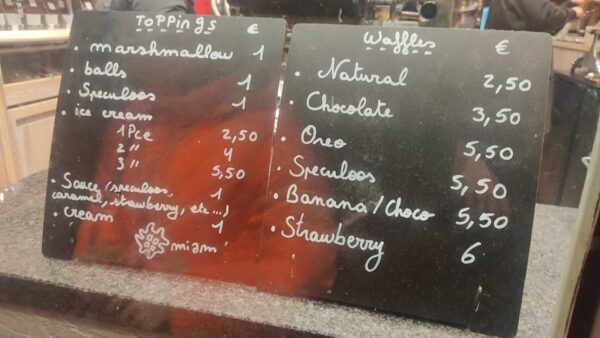 Toppings €
• marshmallow 1
• balls 1
• Speculoos 1
• ice cream
1 Pce 2,50
2 " 4
3 " 5,50
• Sauce (speculoos, 1
caramel, strawberry, etc...)
• cream 1
miam
Waffles €
• Natural 2,50
• Chocolate 3,50
• Oreo 5,50
• Speculoos 5,50
• Banana/Choco 5,50
• Strawberry 6